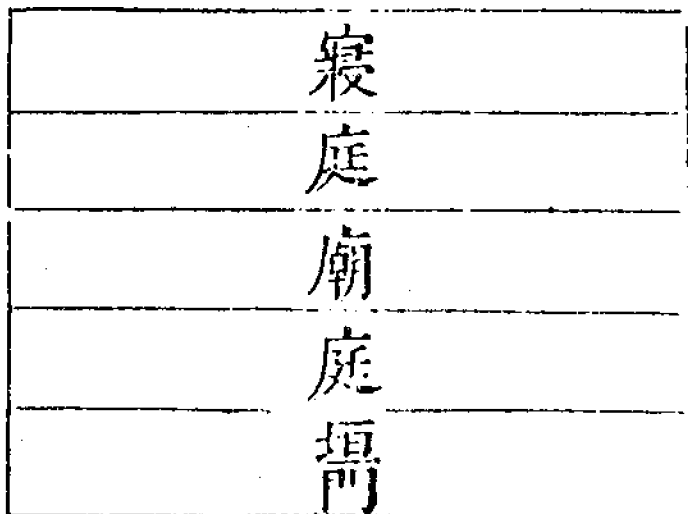 寢
庭
廟
庭
垣門